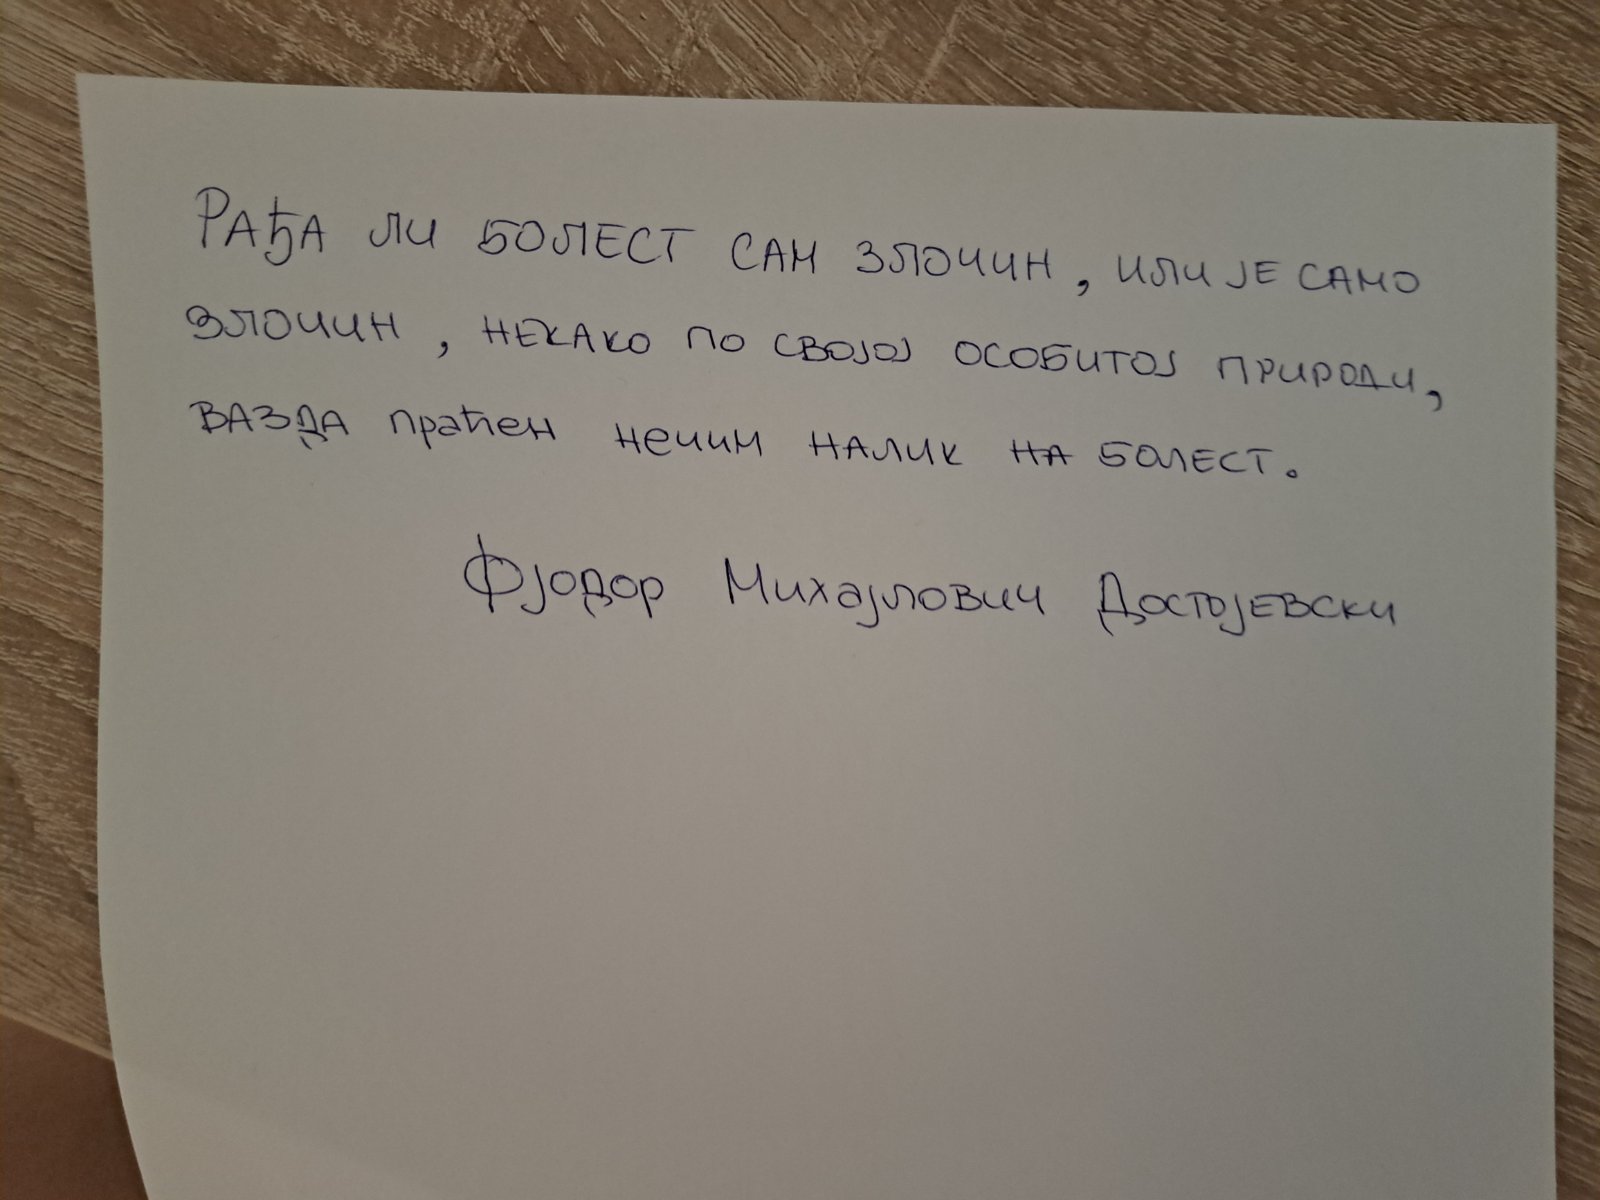 Рађа ли болест сам злочин, или је само
злочин, некако по својој особитој природи,
вазда праћен нечим налик на болест.
Фјодор Михајлович Достојевски